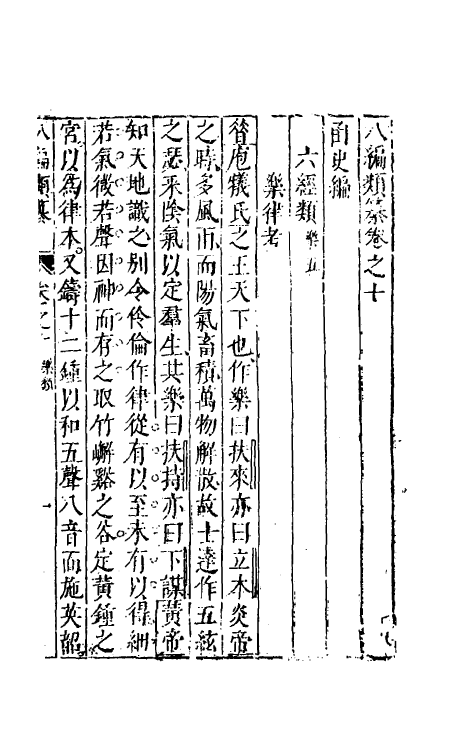 八編類纂卷之十
函史編
六經類 樂五
樂律考
昝庖犧氏之王天下也作樂曰扶來亦曰立本炎帝
之時多風雨而陽氣畜積萬物解散故士達作五絃
之瑟采陰氣以定羣生其樂曰扶持亦曰下謀黃帝
知天地識之别令伶倫作律從有以至未有以得細
若氣微若聲因神而存之取竹嶰谿之谷定黃鍾之
宮以爲律本又鑄十二鍾以和五聲八音而施英韶
八編類纂 卷之十 樂類 一